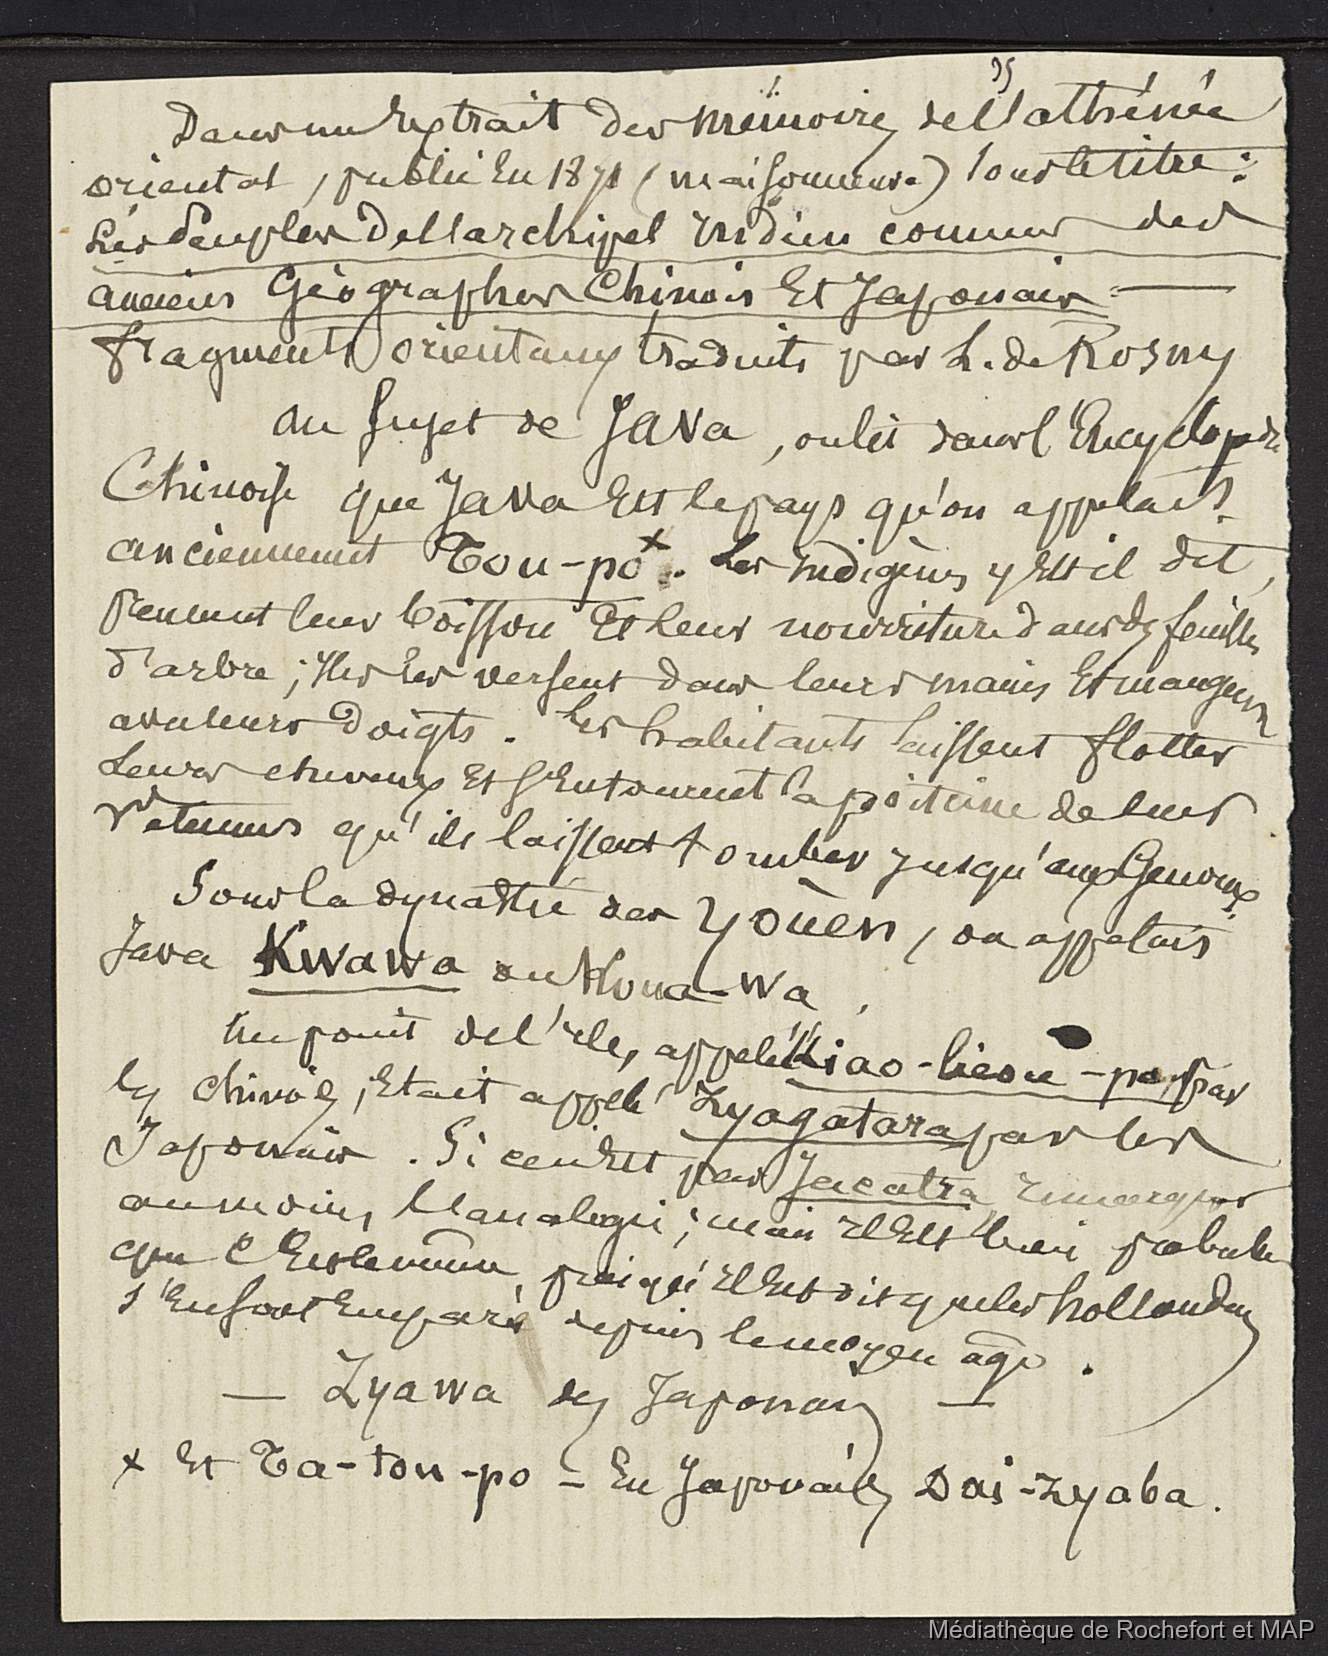 35
Dans un Extrait des mémoires de l'athénée
oriental, publié En 1871 (maisonneuve) sous le titre :
Les Peuples De l'archipel Indien connus des
anciens Géographes Chinois Et Japonais
fragments orientaux traduits par L. de Rosny
au sujet de JAVA, on lit dans l'Encyclopédie
Chinoise que JaVa Est le pays qu'on appelait
anciennement Tou-po x. Les indigènes y Est il dit,
prennent leur boisson Et leur nourriture dans des feuilles
d'arbre ; Ils les versent dans leurs mains Et mangent
avec leurs Doigts. Les habitants laissent flotter
Leurs cheveux Et s'Entourent la poitrine de leurs
Vêtements qu'ils laissent tomber jusqu'aux Genoux.
Sous la dynastie des Yöuen, on appelait
Java Kwawa ou Koua-Wa.
Un point de l'Ile, appelé Kiao-lieou-po, par
les chinois, Etait appelé Zyagatara par les
Japonais. Si ce n'Est pas Jacatra remarquons
au moins l'analogie ; mais il Est bien probable
que c'Est le même, puisqu'il Est dit que les hollandais
s'En sont Emparé depuis le moyen age.
— Zyawa des Japonais —
x Et Ta-tou-po — En Japonais Dai-Zyaba.
Médiathèque de Rochefort et MAP